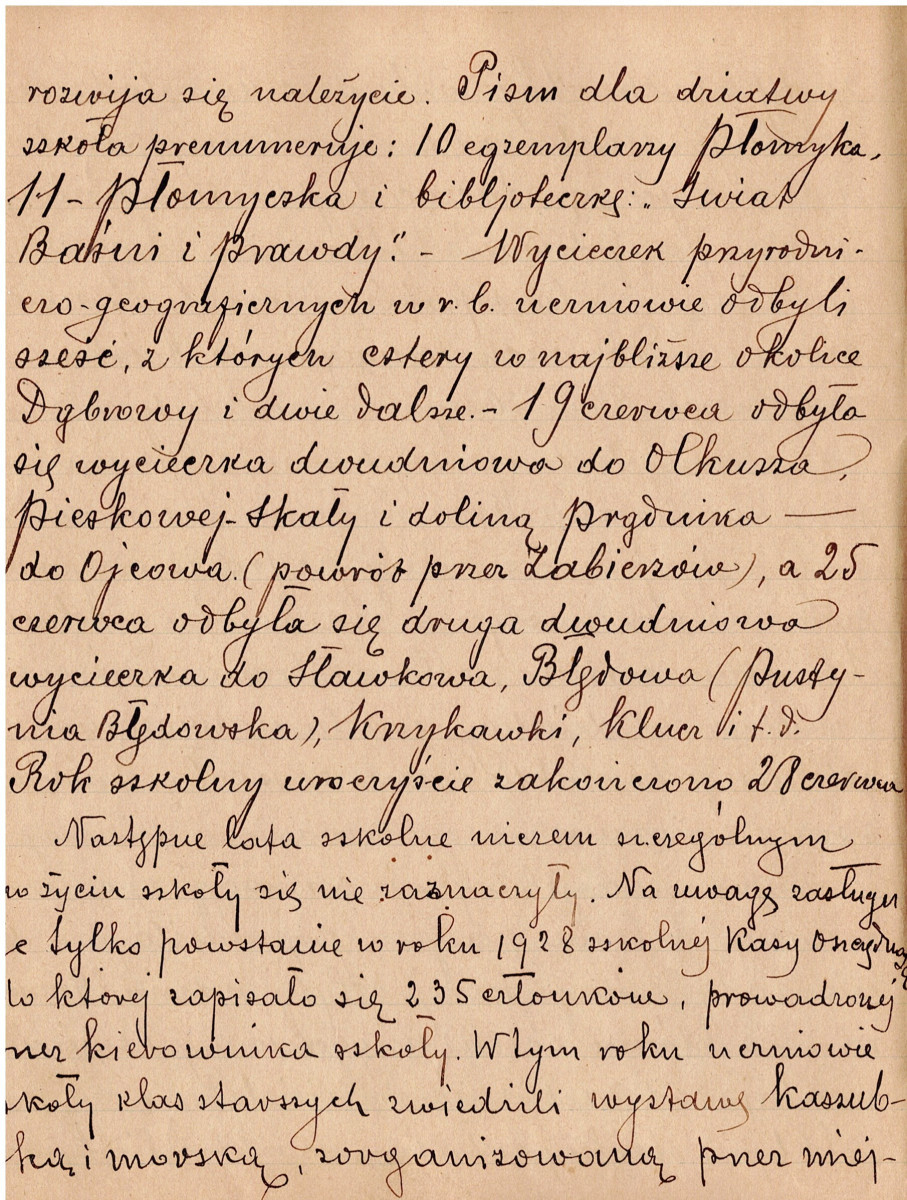 rozwija się należycie. Pism dla dziatwy
szkoła prenumeruje: 10 egzemplarzy Płomyka,
11 - Płomyczka i bibljoteczkę: „Świat
Baśni i Prawdy". - Wycieczek przyrodni-
czo-geograficznych w r. b. uczniowie odbyli
sześć, z których cztery w najbliższe okolice
Dąbrowy i dwie dalsze. - 19 czerwca odbyła
się wycieczka dwudniowa do Olkusza,
Pieskowej-Skały i doliną Prądnika —
do Ojcowa. (powrót przez Zabierzów), a 25
czerwca odbyła się druga dwudniowa
wycieczka do Sławkowa, Błędowa (Pusty-
nia Błędowska), Krzykawki, Klucz i t. d.
Rok szkolny uroczyście zakończono 28 czerwca
Następne lata szkolne niczem szczególnym
w życiu szkoły się nie zaznaczyły. Na uwagę zasługu
e tylko powstanie w roku 1928 szkolnéj Kasy Oszczędnoś
do której zapisało się 235 członków, prowadzonej
przez kierownika szkoły. W tym roku uczniowie
szkoły klas starszych zwiedzili wystawę kaszub-
ką i morską, zorganizowaną przez miej-